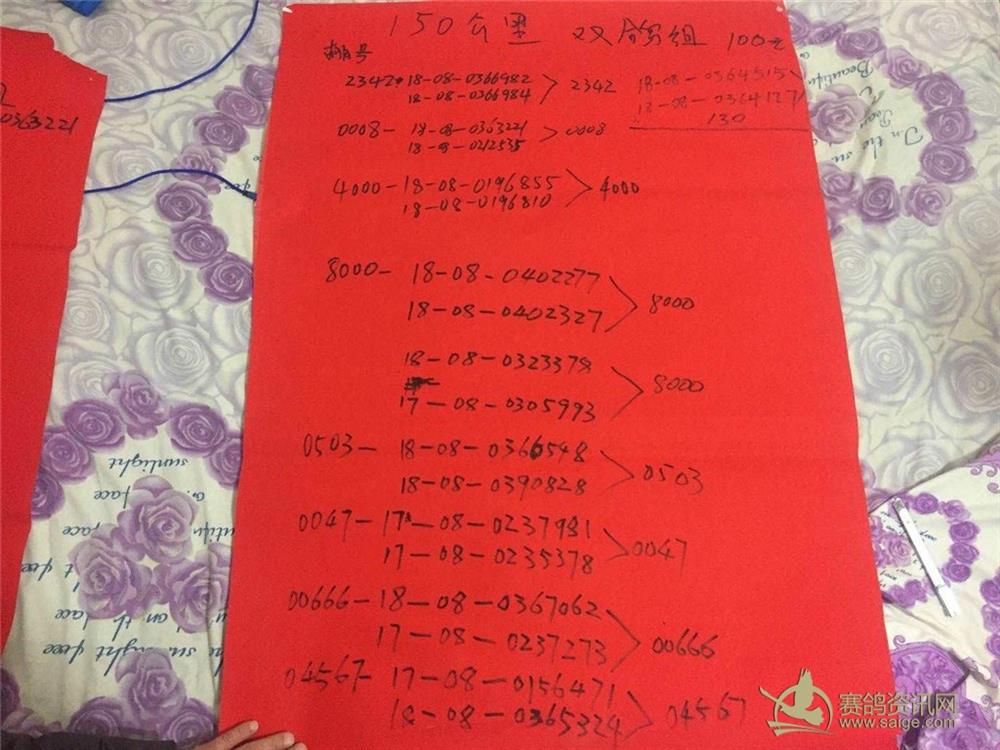 150公里 双鸽组 100元
棚号
2342 18-08-0366982 2342
18-08-0366984
18-08-0364515
18-08-0364127
130
0008-18-08-0363221 0008
18-08-0212535
4000-18-08-0196855 4000
18-08-0196810
8000- 18-08-0402277 8000
18-08-0402327
18-08-0323378 8000
17-08-0305993
0503- 18-08-0366548 0503
18-08-0390828
0047-17-08-0237981 0047
17-08-0235378
00666-18-08-0367062 00666
17-08-0237273
04567-17-08-0156471 04567
18-08-0365324
0363221
Beautiful
Rose
In the
su
sunlight
sunlight
face
赛鸽资讯网
www.saige.com